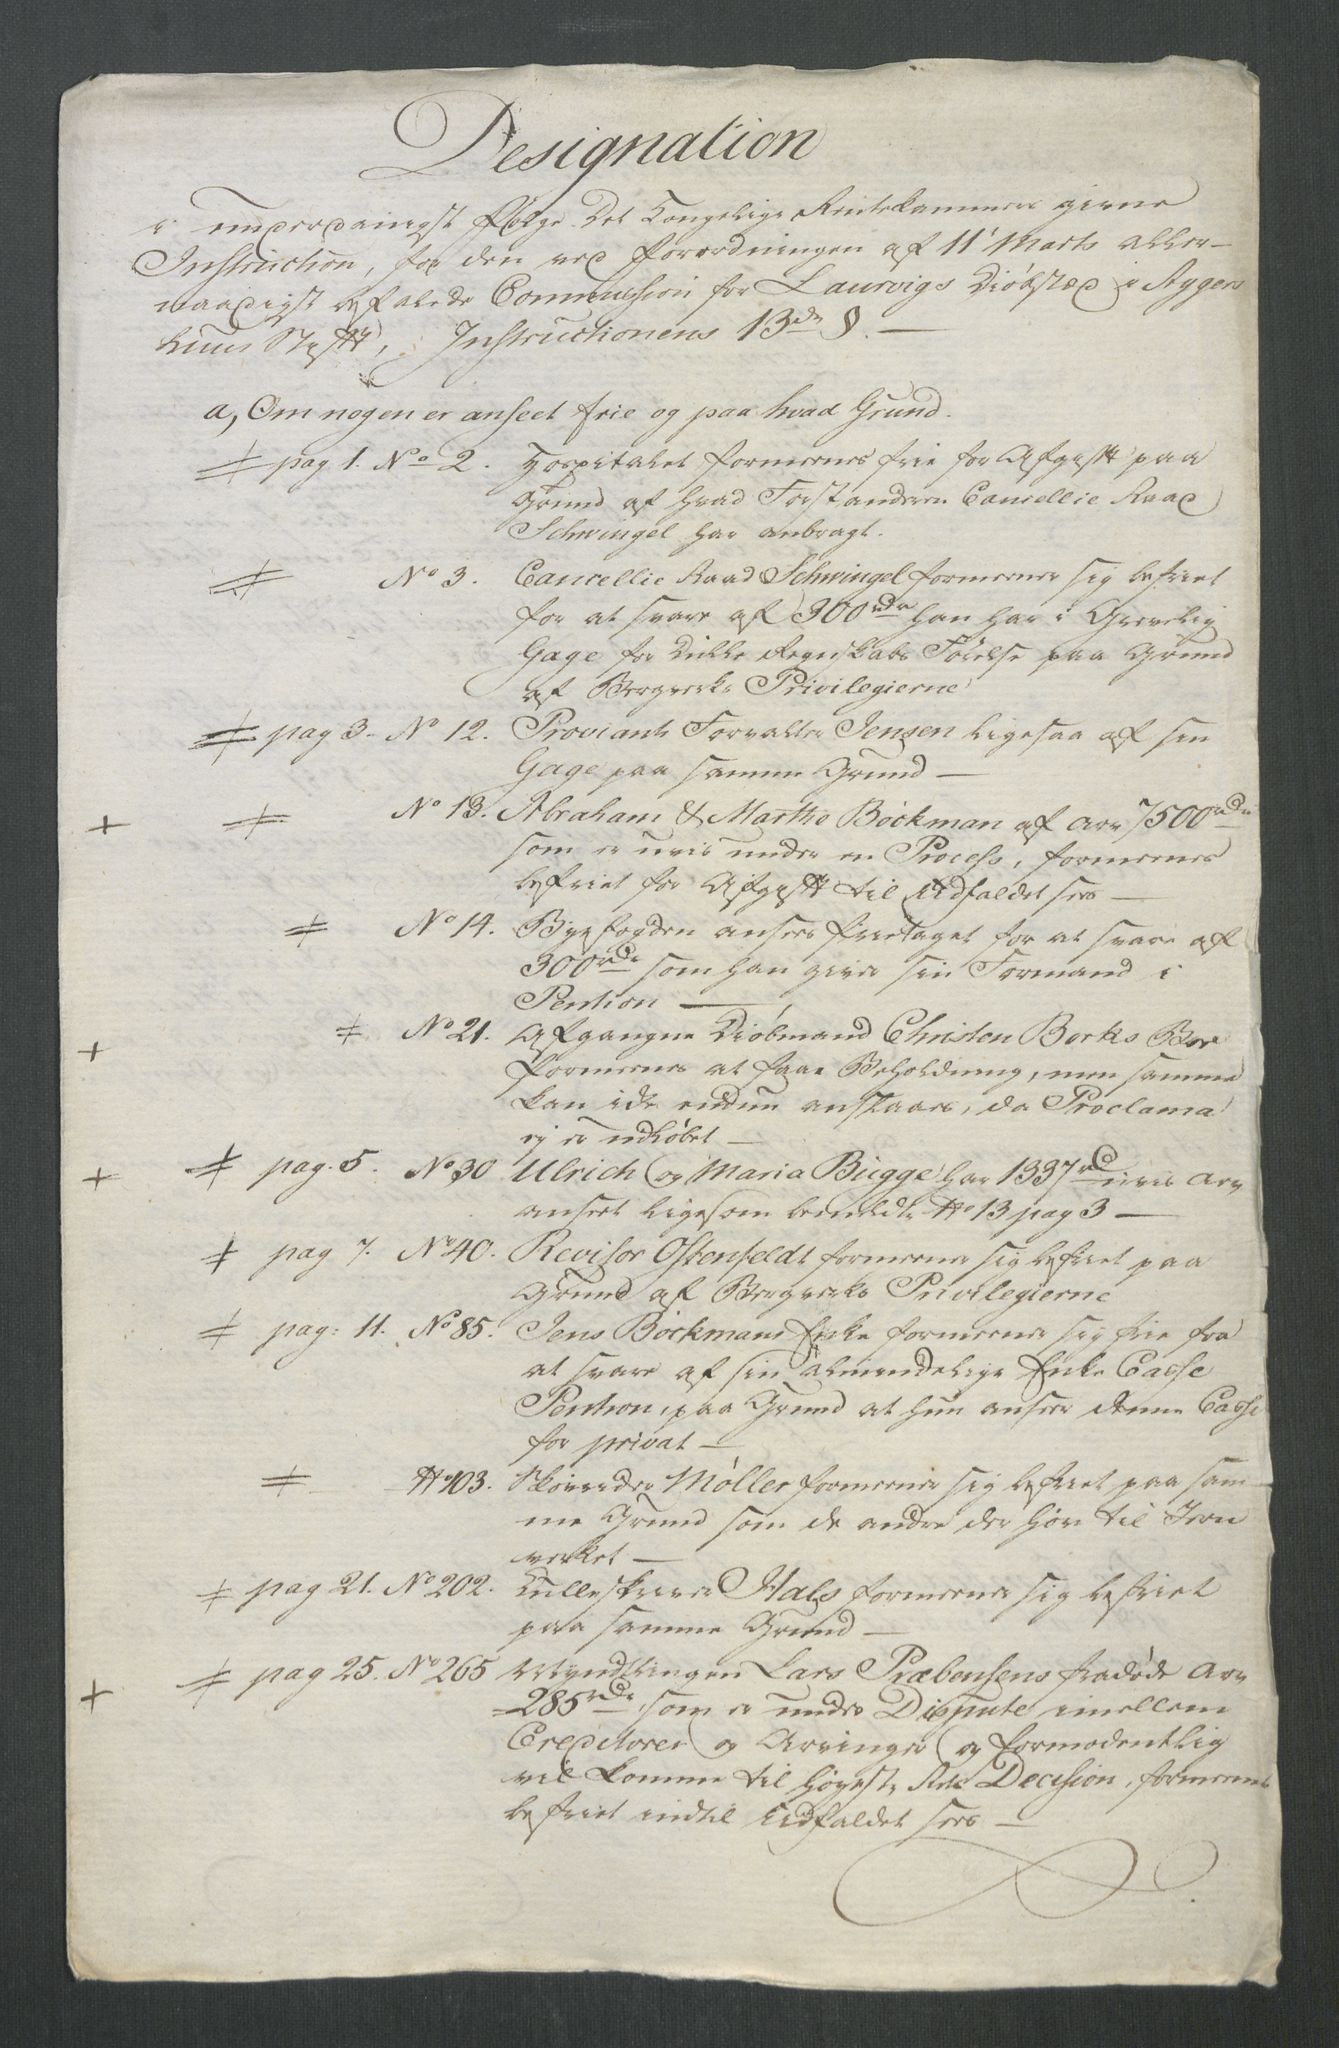 Designation
i underdanigst følge Det Kongelige Rentekammers givne
Instruction, for den ved Forordningen af 11' Marts aller-
naadigst befalede Commission for Laurvigs Kiøbstæd i Aggers
huus Stift, Instructionens 13de §. —
a, Om nogen er anseet frie og paa hvad Grund.
pag 1. No 2. Hospitalet formeenes frie for Afgift paa
Grund af hvad Forstanderen Cancellie Raad
Schwingel har anbragt.
No 3. Cancellie Raad Schwingel formeener sig befriet
for at svare af 300rdr han har i Grevelig
Gage for Regnskabs Førelse paa Grund
af Bergverks Privilegierne
pag 3. No 12. Proviant Forvalter Jensen ligesaa af sin
Gage paa samme Grund —
+ No 13. Abraham & Marthe Böckman af Arv 7500rdr
som er uvis under en Process, formeenes
befriet for Afgift til Udfaldet sees —
No 14. Byefogden ansees fritaget for at svare af
300rdr som han giver sin Formand i
Pention —
+ No 21. Afgangne Kiøbmand Christen Borks Boe
formeenes at faae Beholdning, men samme
kan ikke endnu anslaaes, da Proclama
ej er udløbet —
+ pag. 5. No 30 Ulrich og Maria Bugge har 1337rd uvis Arv
anseet ligesom bemeldte No 13 pag 3 —
pag 7. No 40. Revisor Ostenfeldt formeener sig befriet paa
Grund af Bergverks Privilegierne
pag: 11. No 85. Jens Böckmans Enke formeener sig frie fra
at svare af sin almindelige Enke Casse
Pention, paa Grund at hun anseer denne Casse
for privat —
No 103. Skovrider Møller formeener sig befriet paa sam-
me Grund som de andre der hører til Jern
verket —
pag 21. No 202. Kulleskriver Hals formeener sig befriet
paa samme Grund —
+ pag 25. No 265 Myndlingen Lars Præbensens fradøde Arv
285rdr som er under Dispute imellem
Creditorer og Arvinger og formodentlig
vil komme til Høyeste Rets Decision, formeenes
befriet indtil Udfaldet sees —